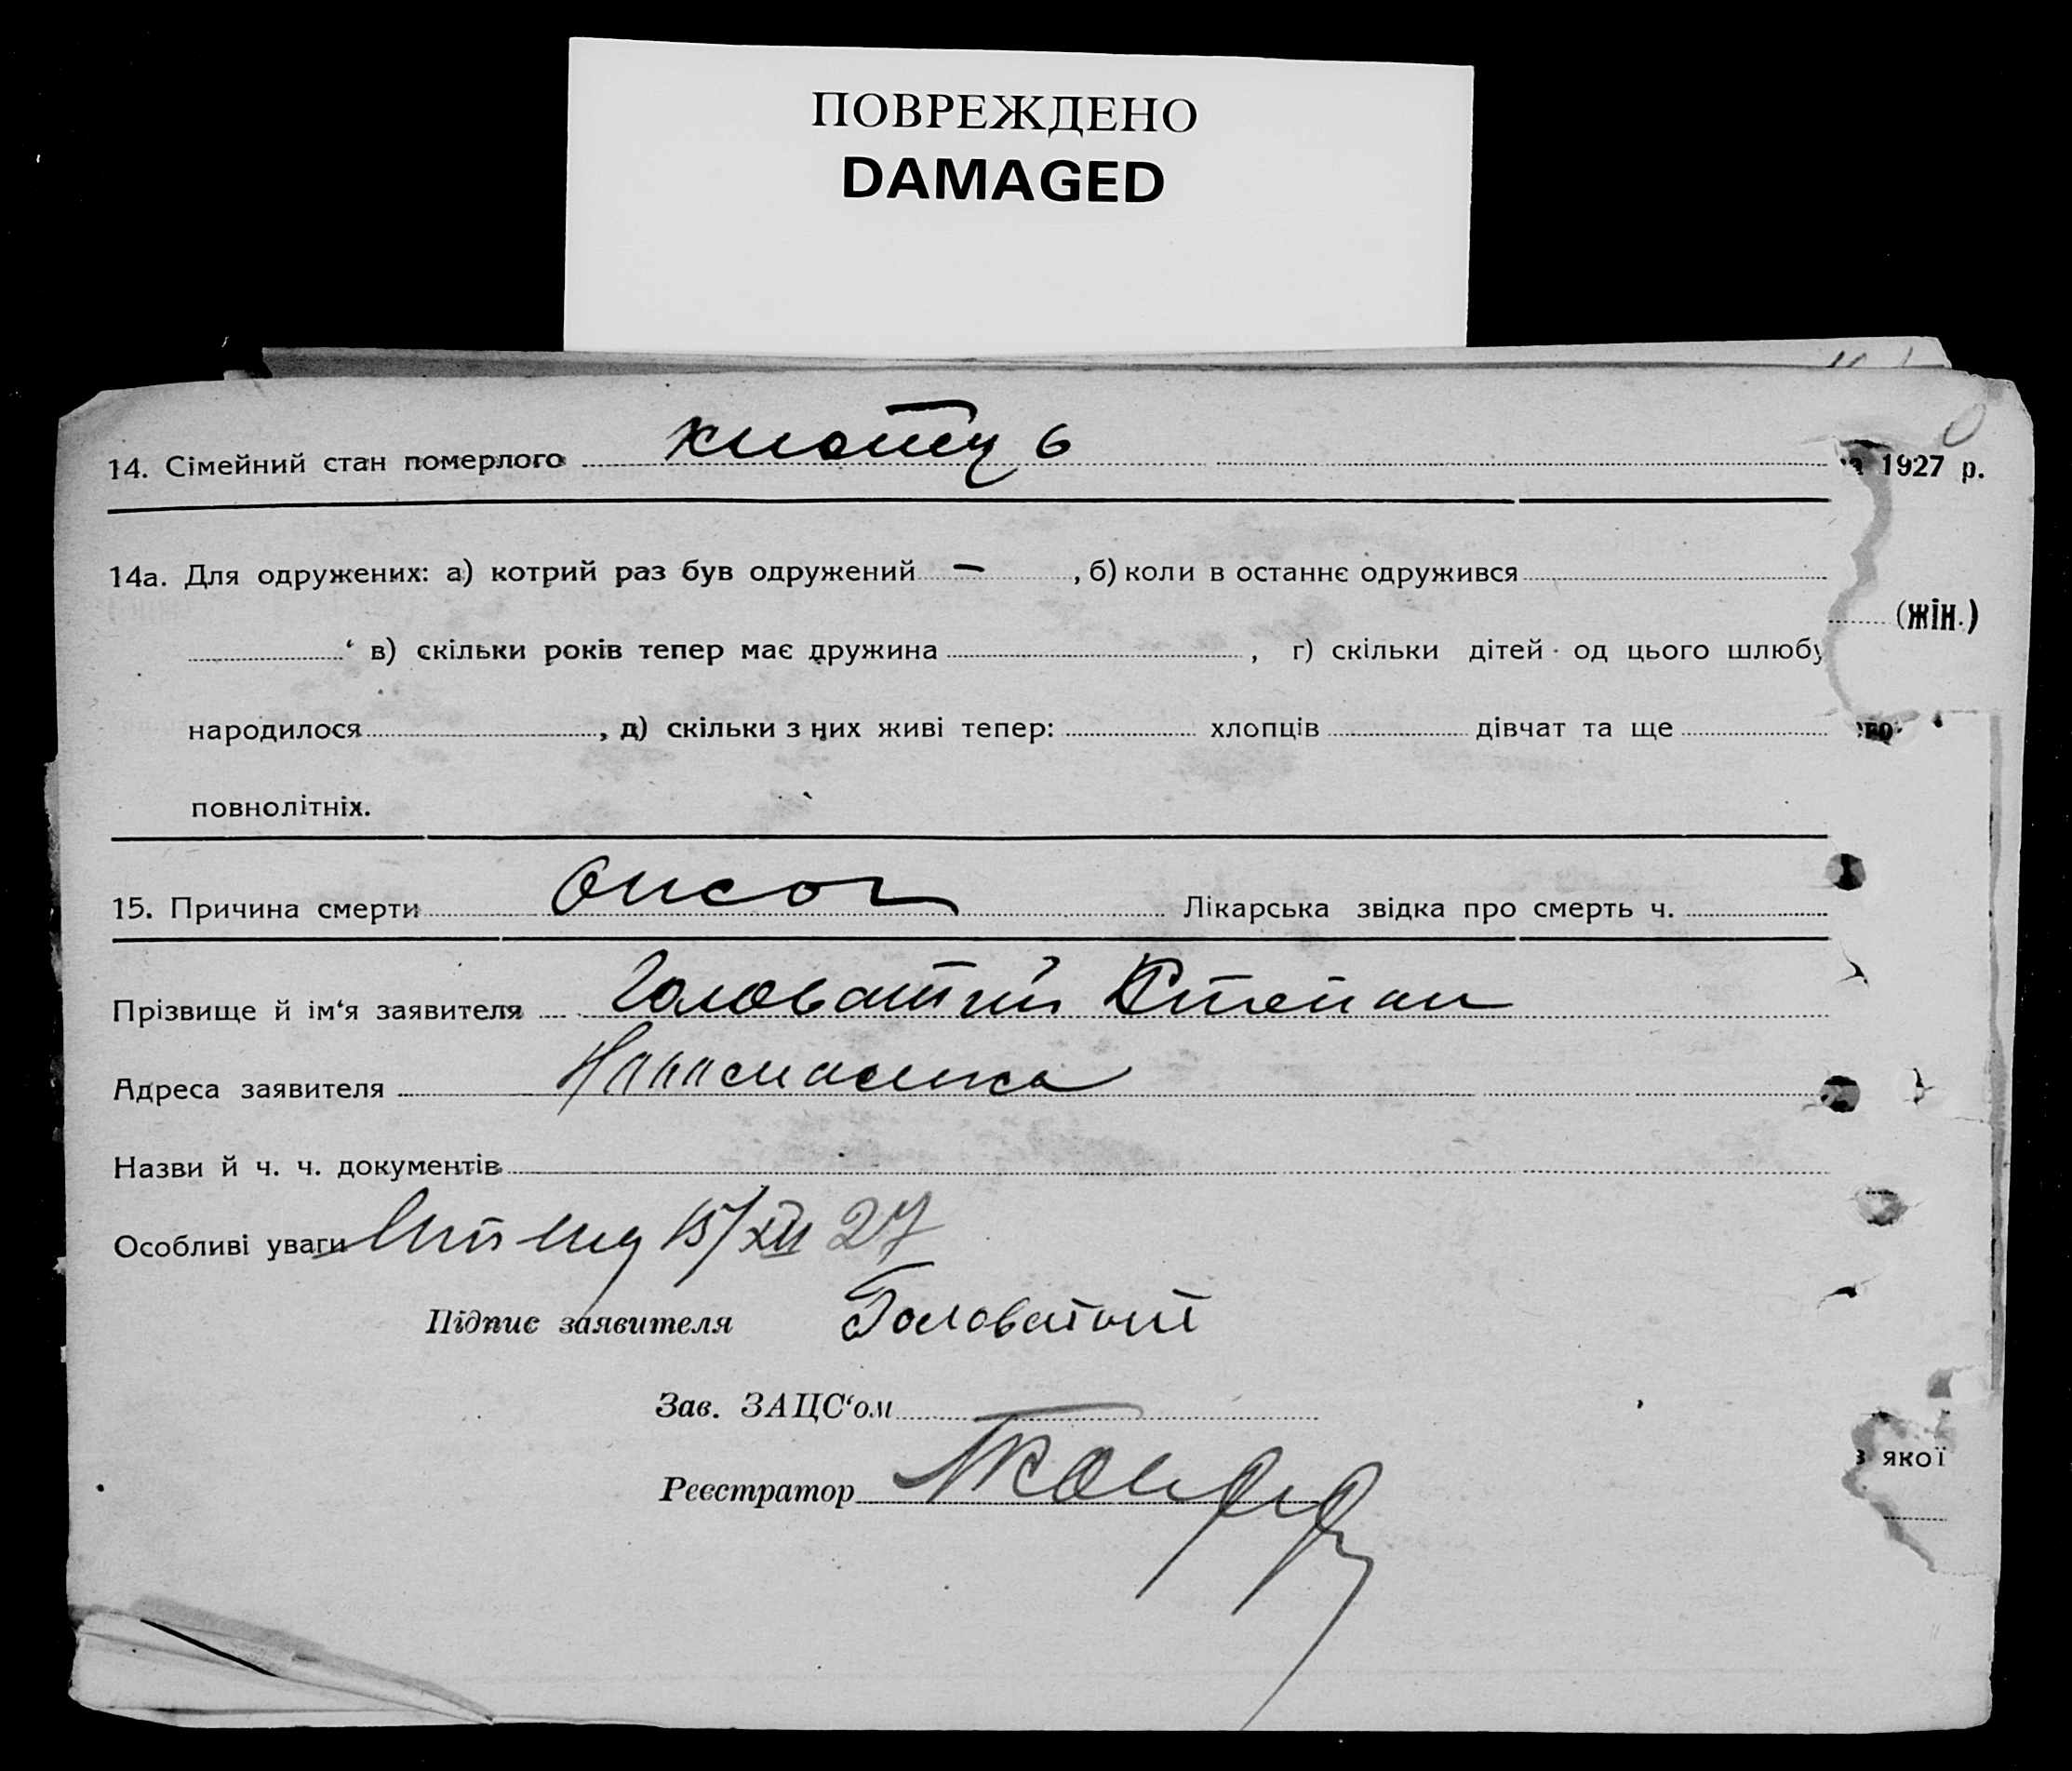 ПОВРЕЖДЕНО
DAMAGED
14. Сімейний стан померлого хлопец ь
1927 р.
14а. Для одружених: а) котрий раз був одружений — , б) коли в останнє одружився
(жін.)
в) скільки років тепер має дружина , г) скільки дітей од цього шлюбу
народилося , д) скільки з них живі тепер: хлопців дівчат та ще
повнолітніх.
15. Причина смерти Лікарська звідка про смерть ч.
Прізвище й ім‘я заявителя Головатий Степан
Адреса заявителя
Назви й ч. ч. документів
Особливі уваги 15/XII 27
Підпис заявителя Головатий
Зав. ЗАЦС‘ом
з якої
Реєстратор